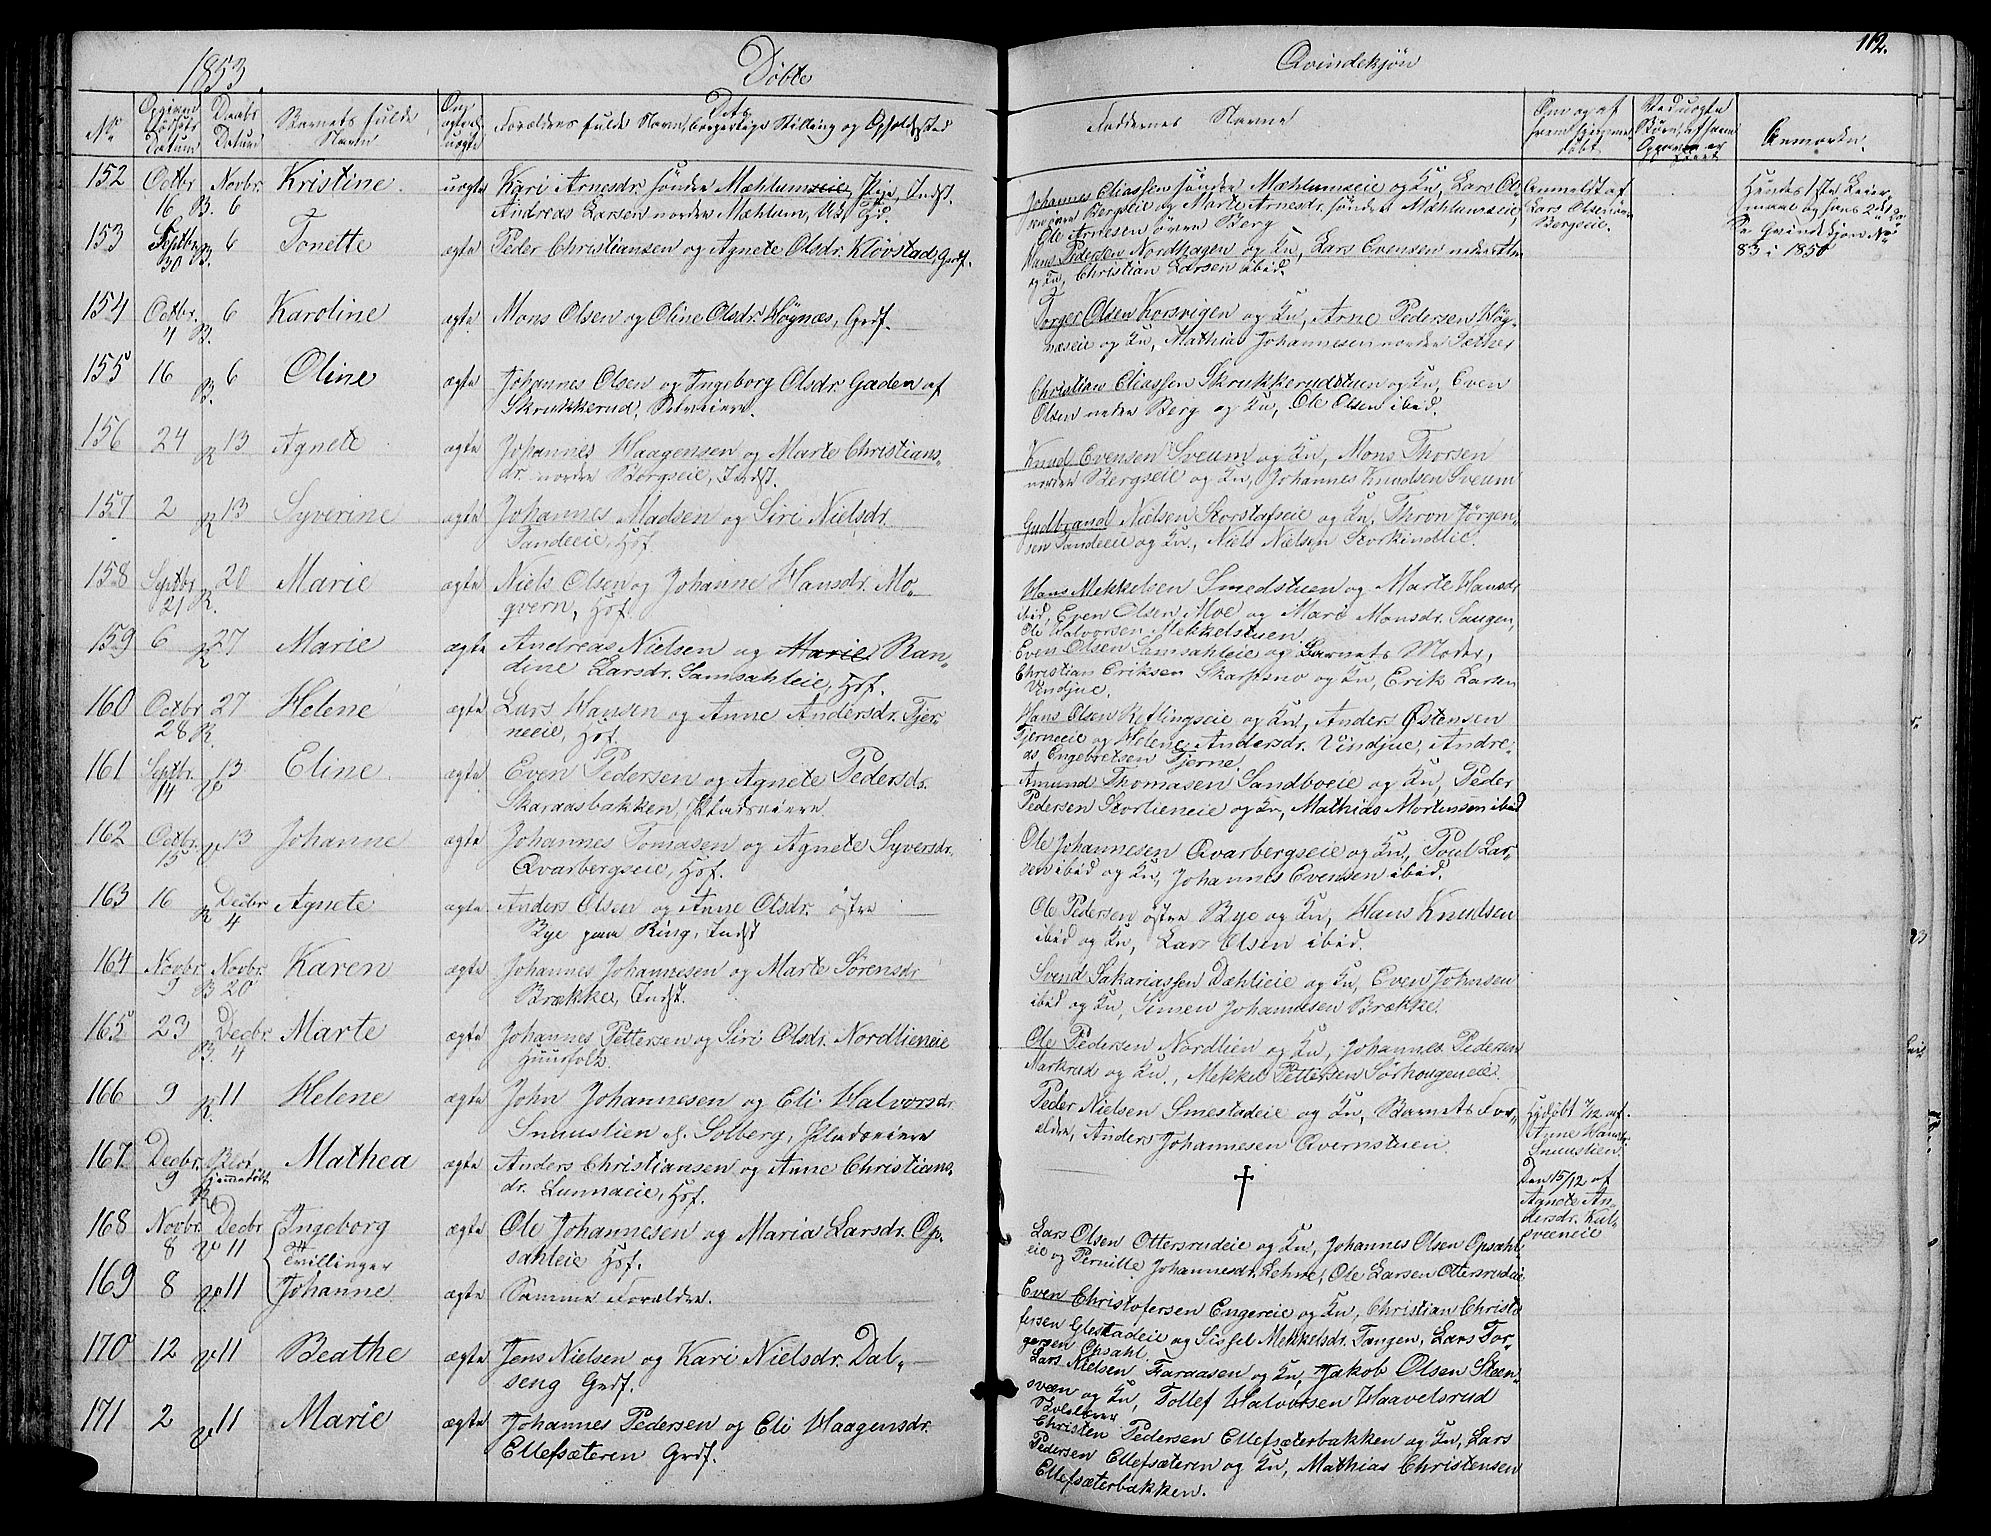 1853.
Döbte
Qvindekjön
112.
No
Opgiven Födsels Datum
Daabs Datum
Barnets fulde Navn
Om ægte el. uægte
Forældres fulde Navn, borgerlige Stilling og Opholdssted
Faddernes Navne
Om og af hvem hjemme döbt
Anmærkn.
152 Octbr. 16 Novbr. 6 B. Kristine uægte Kari Arnesdr. söndre Mæhlumseie Pige, Indst.
Andreas Larsen nordre Mæhlum, Uk.
Johannes Eliassen söndre Mæhlumseie og Ku, Lars Ol-
sen övre Bergseie og Marte Arnesdr. söndre Mæhlumseie,
Ole Arnesen övre Berg
Anmeldt af Lars Olsen övre Bergseie.
Hendes 1ste Leier-
maal og hans 2det
83 i 1850
153 Septbr. 30 B. 6 Tonette ægte Peder Christiansen og Agnete Olsdr. Klövstad, Grdf.
Hans Pedersen Nordhagen og Ku, Lars Evensen nedre
og Ku, Christian Larsen ibid.
154 Octbr. 4 B. 6 Karoline ægte Mons Olsen og Oline Olsdr. Högnæs, Grdf.
Torger Olsen Korsvigen og Ku, Arne Pedersen Hög-
næseie og Ku, Mathias Johannesen nordre Sæther
155 16 B. 6 Oline ægte Johannes Olsen og Ingeborg Olsdr. Gaden af
Skrukkerud, Selveiere.
Christian Eliassen Skrukkerudstuen og Ku, Even
Olsen nedre Berg og Ku, Ole Olsen ibid.
156 24 R 13 Agnete ægte Johannes Haagensen og Marte Christians-
dr. nordre Bergseie, Indst.
Knud Evensen Sveum og Ku, Mons Thorsen
nordre Bergseie og Ku, Johannes Knudsen Sveum
157 2 R 13 Syverine ægte Johannes Madsen og Siri Nielsdr.
Tandeeie, Hof
Gudbrand Nielsen Storstafseie og Ku, Thron Jörgen-
sen Tandeeie og Ku., Niels Nielsen Storkindlie.
158 Septbr. 21 R. 20 Marie ægte Niels Olsen og Johanne Hansdr. Mo-
qvern, Hof.
Hans Mekkelsen Smedstuen og Marte Hansdr
ibid, Even Olsen Moe og Mari Monsdr. Saugen,
Ole Halvorsen Mekkelstuen
159 6 R 27 Marie ægte Andreas Nielsen og Marie Ran-
dine Larsdr. Samsahleie, Hof.
Even Olsen Samsahleie og Barnets Moder,
Christian Eriksen Skarpsno og Ku, Erik Larsen
Vindjue.
160 Octbr. 28 R. 27 Helene ægte Lars Hansen og Anne Andersdr. Tjer-
neeie, Hof.
Hans Olsen Keflingseie og Ku, Anders Östensen
Tjerneeie og Helene Andersdr. Vindjue, Andre-
as Engebretsen Tjerne
161 Septbr. 14 V 13 Eline ægte Even Pedersen og Agnete Pedersdr.
Skaraasbakken, Pladseiere
Amund Thomasen Sandboeie og Ku, Peder
Pedersen Stortieneie og Ku, Mathias Mortensen ibid
162 Octbr. 15 V 13 Johanne ægte Johannes Tomasen og Agnete Syversdr.
Qvarbergseie, Hof.
Ole Johannesen Qvarbergseie og Ku, Poul Lar-
sen ibid og Ku, Johannes Evensen ibid.
163 16 R Decbr. 4 Agnete ægte Anders Olsen og Anne Olsdr. östre
Bye paa Ring, Indst
Ole Pedersen östre Bye og Ku, Hans Knudsen
ibid og Ku, Lars Olsen ibid.
164 Novbr. 9 Novbr. B 20 Karen ægte Johannes Johannesen og Marte Sörensdr
Brække, Indst.
Svend Sakariassen Dæhlieie og Ku, Even Johnsen
ibid og Ku, Simen Johannesen Brække.
165 23 Decbr. B. 4 Marte ægte Johannes Pettersen og Siri Olsdr. Nordlieneie
Huusfolk.
Ole Pedersen Nordlien og Ku, Johannes Pedersen
Markrud og Ku., Mekkel Pettersen Sörhougeneie.
166 9 R. 11 Helene ægte John Johannesen og Eli Halvorsdr.
Snuustien af Solberg, Pladseiere
Peder Nielsen Smestadeie og Ku, Barnets For-
ældre, Anders Johannesen Qvernstuen.
Hjdöbt af Anne Hansdr. Snuustien.
167 Decbr. 9 Blot hjemmedöbt R. Mathea ægte Anders Christiansen og Anne Christians-
dr. Lunndeie, Hof.
†
Den 15/12 af Agnete An-
dersdr. Kal-
sveeneie
168 Novbr. 8 Decbr. V 11 Ingeborg ægte Ole Johannesen og Maria Larsdr. Op-
sahleie Hof.
Tvillinger
Lars Olsen Ottersrudeie og Ku, Johannes Olsen Opsahl-
eie og Pernille Johannesdr. Lehne, Ole Larsen Ottersrudeie
169 8 V 11 Johanne ægte Samme Forældre.
Even Christofersen Engereie og Ku, Christian Christo
fersen Glestadeie og Sissel Mekkelsdr. Tangen, Lars Tor-
gersen Opsahl
170 12 V 11 Beathe ægte Jens Nielsen og Kari Nielsdr. Dal-
seng Grdf.
Lars Nielsen Faraasen og Ku, Jakob Olsen Steen-
sveen og Ku, Tollef Halvorsen Haavelsrud
171 2 V 11 Marie ægte Johannes Pedersen og Eli Haagensdr.
Ellefsæteren Grdf.
Christen Pedersen Ellefsæterbakken og Ku, Lars
Pedersen Ellefsæteren og Ku, Mathias Christensen
Ellefsæterbakken.